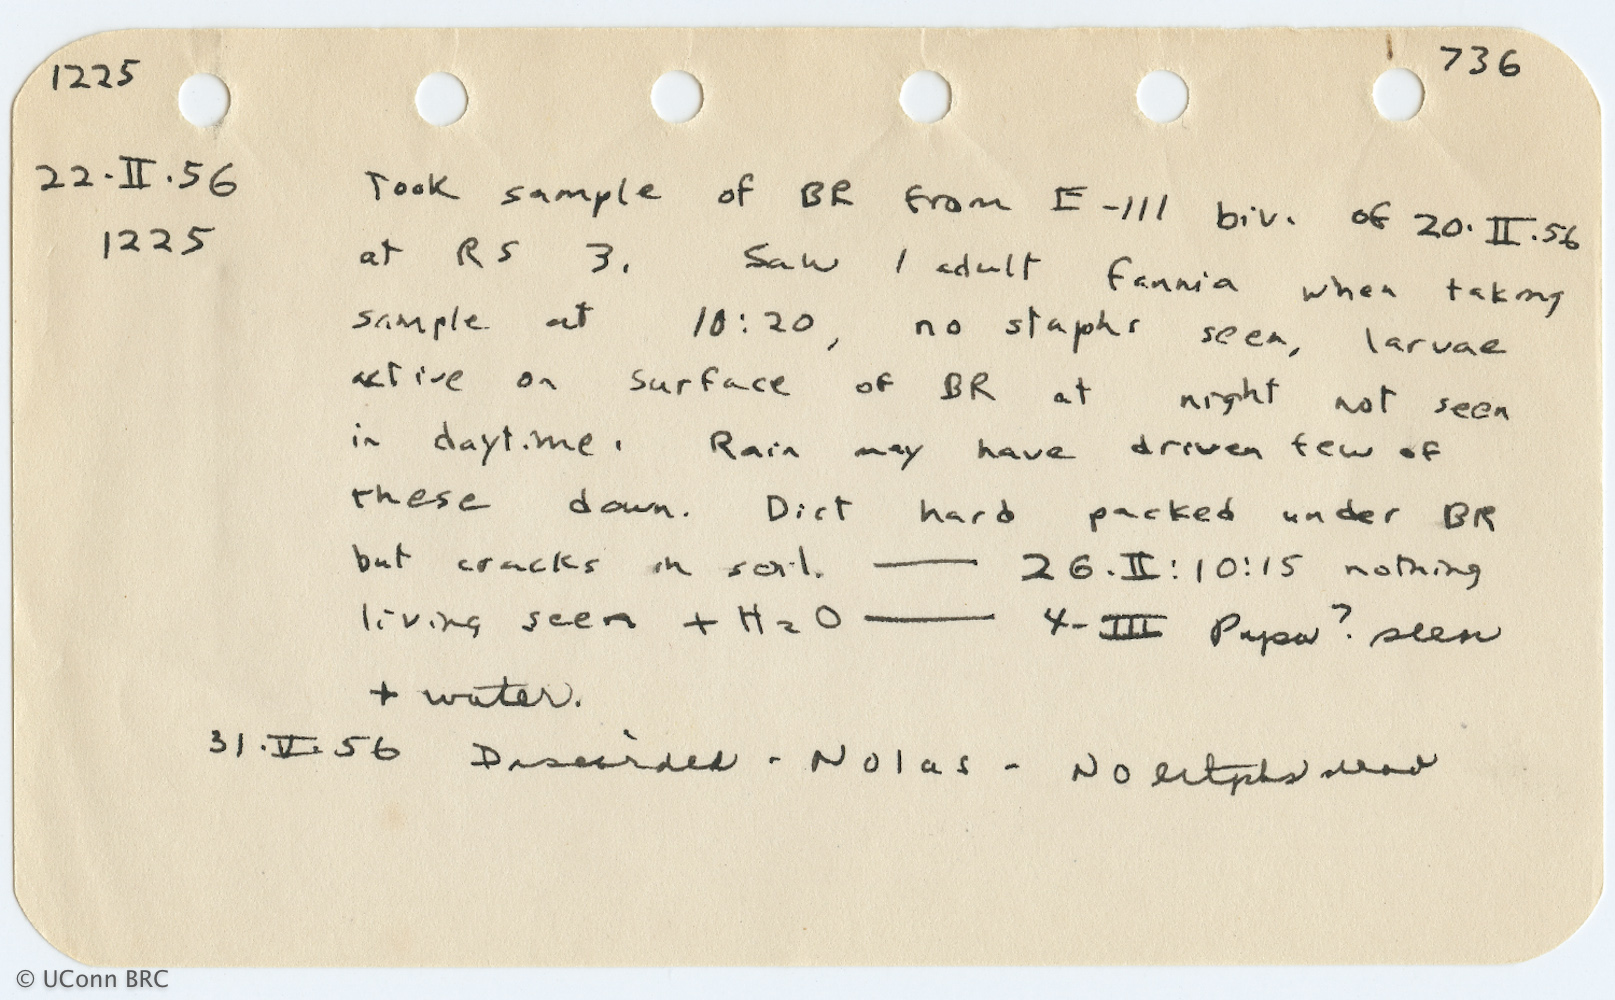 1225 736
22·II·56 Took sample of BR from E-III biv. of 20·II·56
1225 at RS 3. Saw 1 adult Fannia when taking
sample at 10:20, no staphs seen, larvae
active on surface of BR at night not seen
in daytime. Rain may have driven few of
these down. Dirt hard packed under BR
but cracks in soil. — 26.II:10:15 nothing
living seen + H2O — 4-III Pupa? seen
+ water.
31.V.56 Discarded - No las - No
© UConn BRC